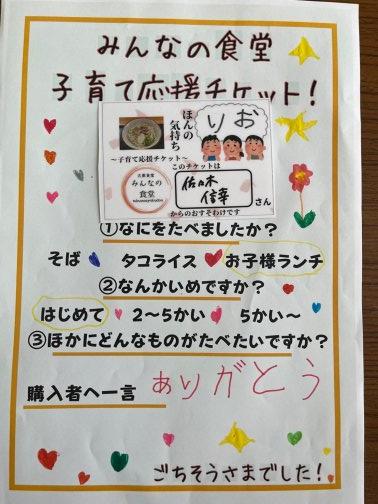 みんなの食堂
子育て応援チケット！
ほんの気持ち
おり
～子育て応援チケット～
このチケットは
みんなの食堂
佐々木
信幸
さん
からのおすそわけです
①なにをたべましたか？
そば タコライス お子様ランチ
②なんかいめですか？
はじめて 2～5かい 5かい～
③ほかにどんなものがたべたいですか？
購入者へ一言 ありがとう
ごちそうさまでした！